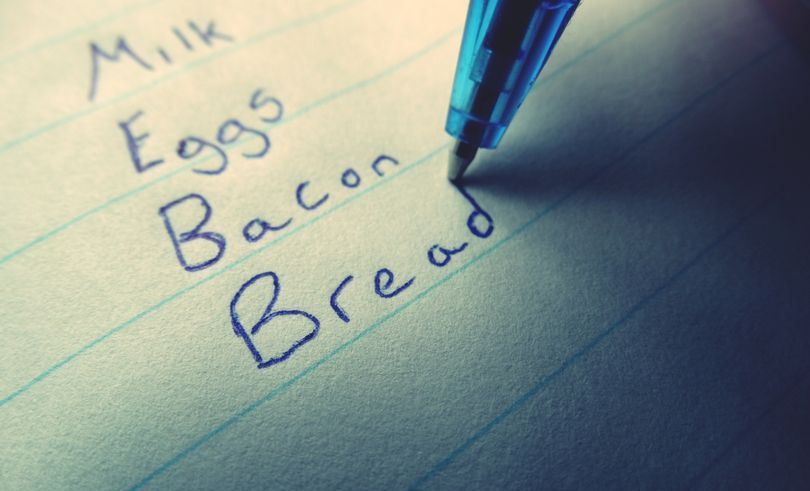 Milk
Eggs
Bacon
Bread